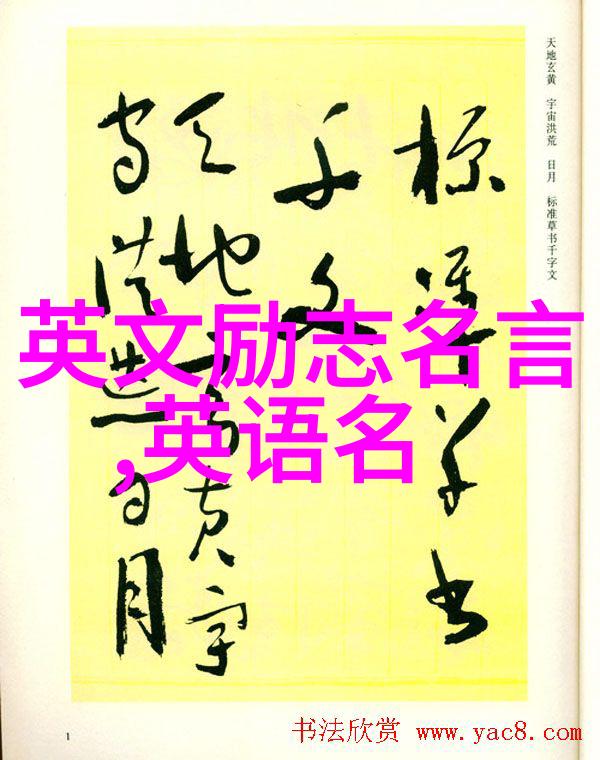 标准草书
千文
天地玄黄宇
宙洪荒日月
天地玄黄 宇宙洪荒 日月 标准草书千字文
英文励志名言
,英语名
1
书法欣赏 www.yac8.com